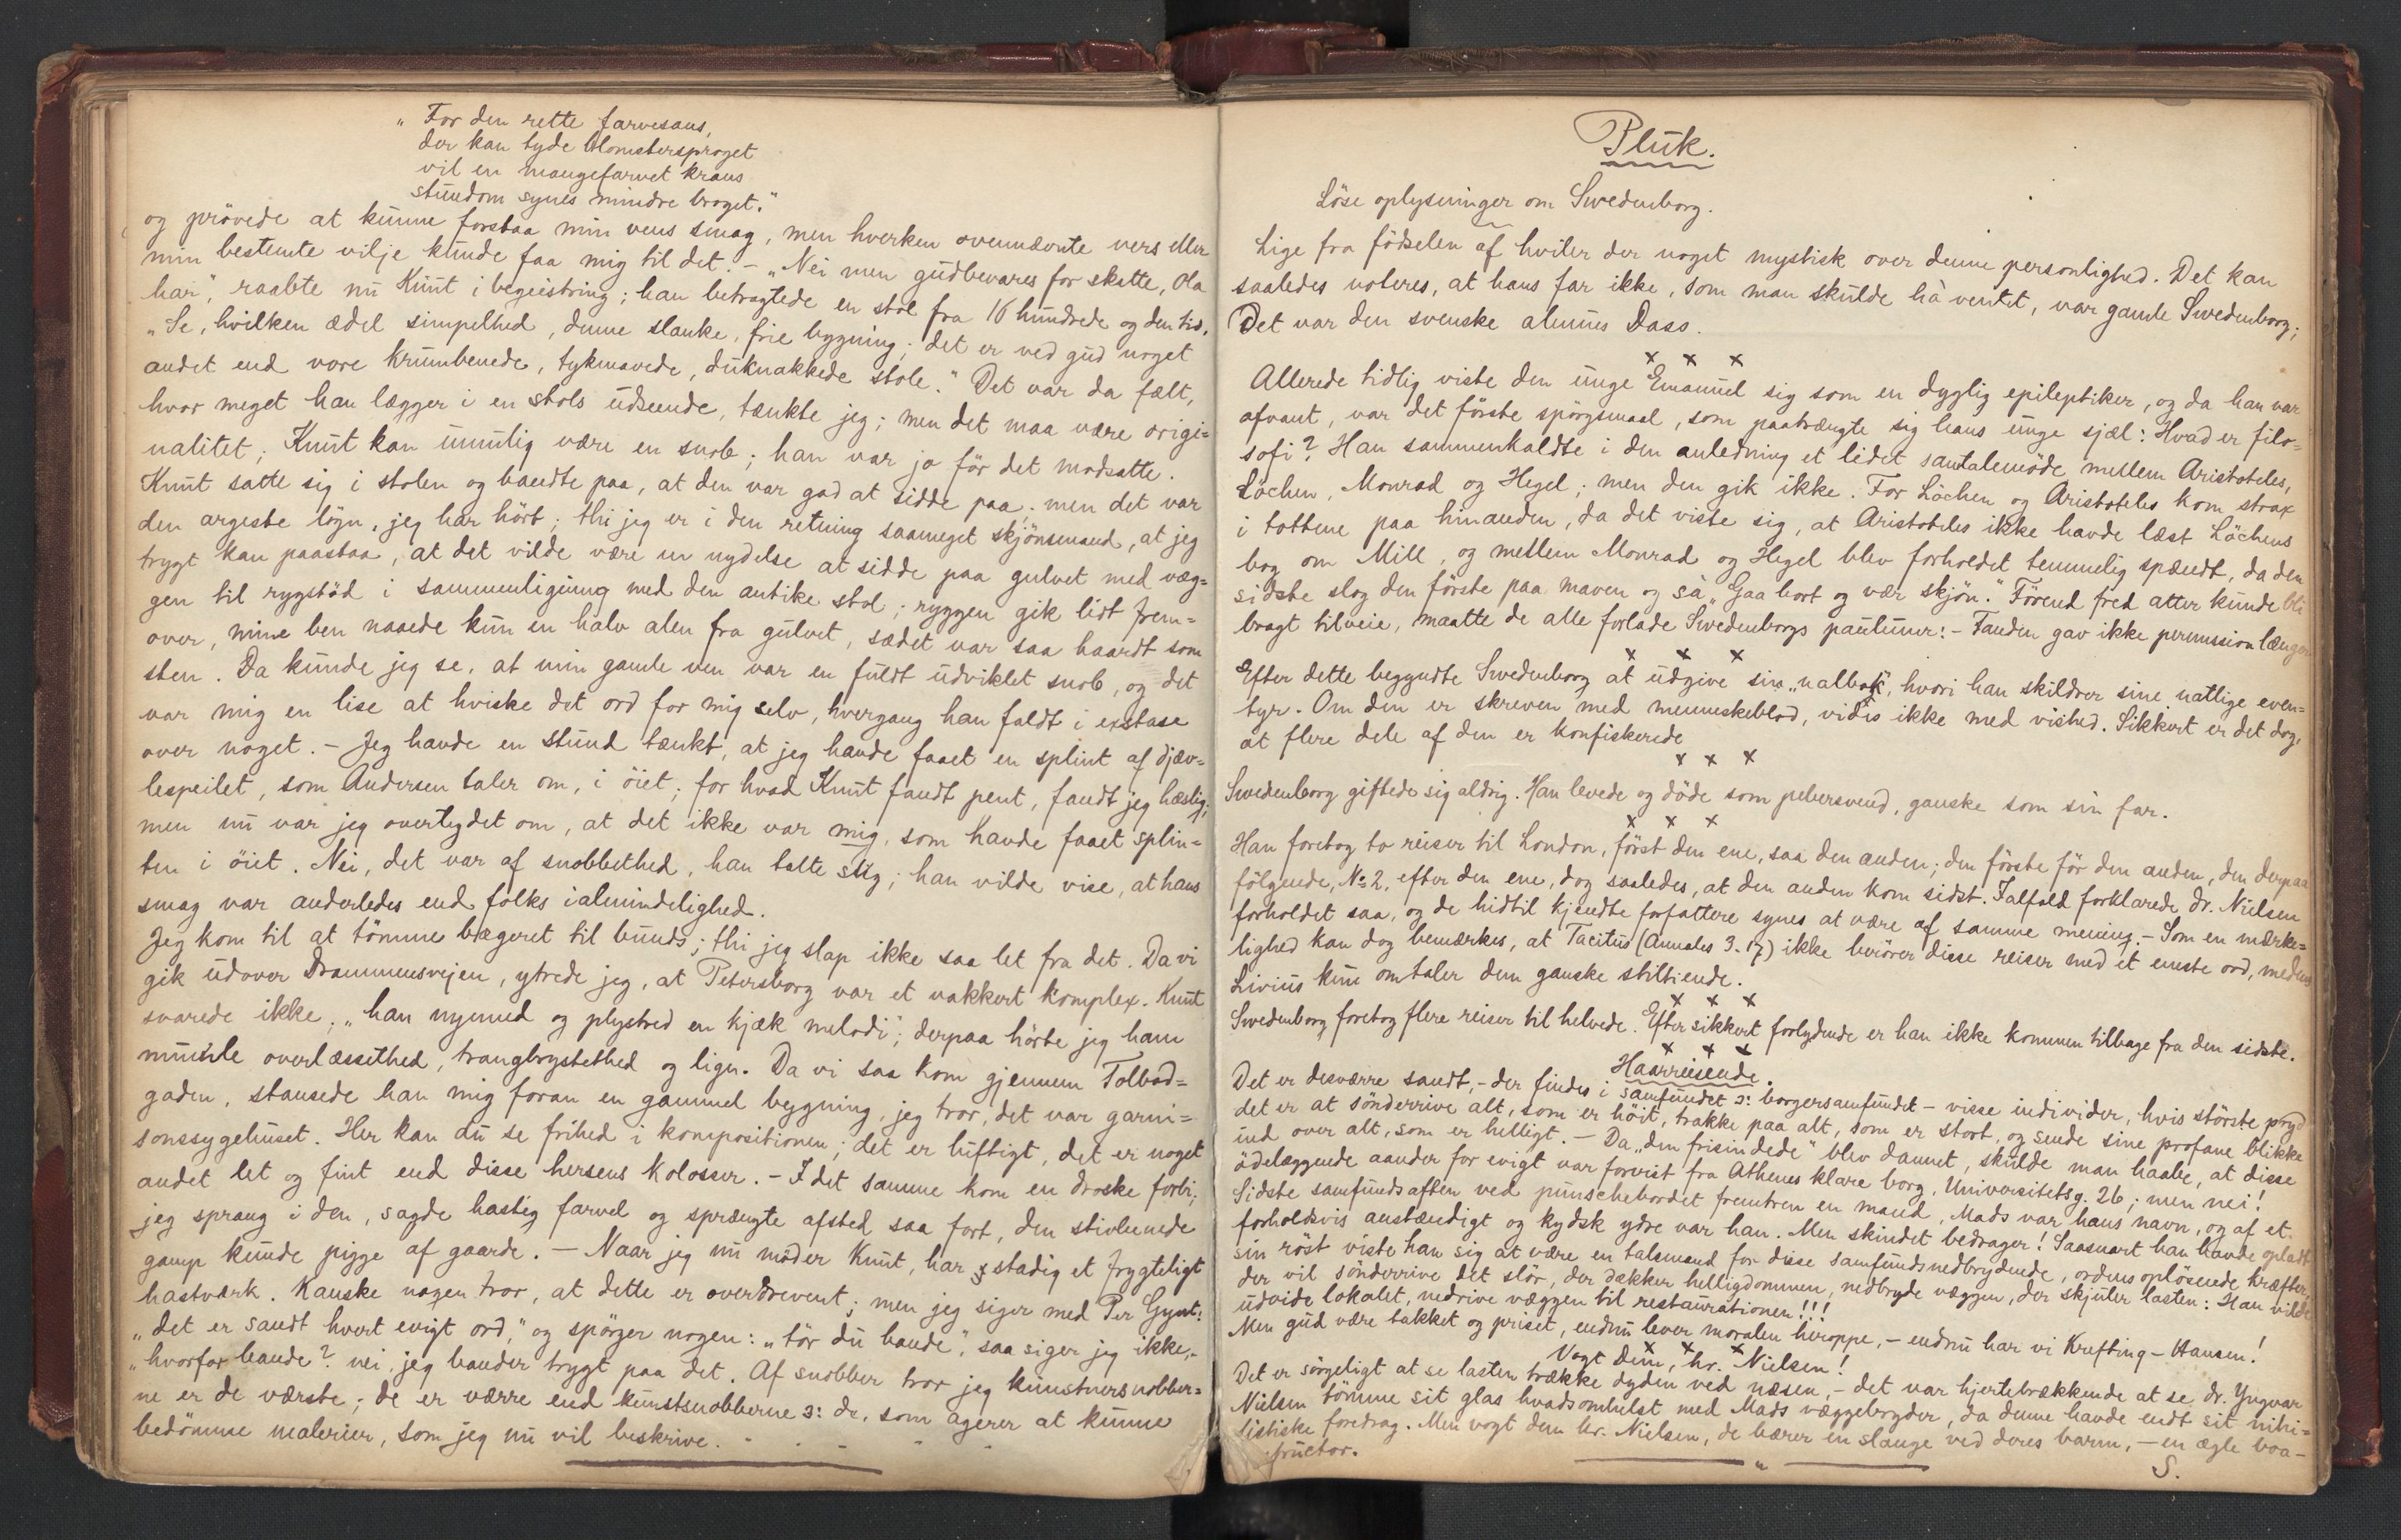 "For den rette farvesans,
der kan tyde blomstersproget
vil en mangefarvet krans
stundom synes mindre broget."
og prövede at kunne forstaa min vens smag, men hverken ovennævnte vers eller
min bestemte vilje kunde faa mig til det. – "Nei men gudbevares for skatte, Ola
har", raabte nu Knut i begeistring; han betragtede en stol fra 16 hundrede og den tid.
"Se, hvilken ædel simpelhed, denne slanke, frie bygning; det er ved gud noget
andet end vore krumbenede, tykmavede, duknakkede stole." Det var da fælt,
hvor meget han lægger i en stols udseende, tænkte jeg; men det maa være origi=
nalitet; Knut kan umulig være en snob; han var jo för det modsatte.
Knut satte sig i stolen og bandte paa, at den var god at sidde paa; men det var
den argeste lögn, jeg har hört; thi jeg er i den retning saameget skjönsmand, at jeg
trygt kan paastaa, at det vilde være en nydelse at sidde paa gulvet med væg=
gen til rygstöd i sammenligning med den antike stol; ryggen gik lidt frem=
over, mine ben naaede kun en halv alen fra gulvet, sædet var saa haardt som
sten. Da kunde jeg se, at min gamle ven var en fuldt udviklet snob, og det
var mig en lise at hviske det ord for mig selv, hvergang han faldt i exstase
over noget. – Jeg havde en stund tænkt, at jeg havde faaet en splint af djæv=
lespeilet, som Andersen taler om, i öiet; for hvad Knut fandt pent, fandt jeg hæslig;
men nu var jeg overtydet om, at det ikke var mig, som havde faaet splin=
ten i öiet. Nei, det var af snobbethed, han talte slig; han vilde vise, at hans
smag var anderledes end folks ialmindelighed.
Jeg kom til at tömme bægeret til bunds; thi jeg slap ikke saa let fra det. Da vi
gik udover Drammensvejen, ytrede jeg, at Petersborg var et vakkert komplex. Knut
svarede ikke, "han nynned og plystred en kjæk melodi"; derpaa hörte jeg ham
mumle overlæssethed, trangbrystethed og lign. Da vi saa kom gjennem Tolbod=
gaden, stansede han mig foran en gammel bygning, jeg tror, det var garni=
sonssygehuset. Her kan du se frihed i kompositionen; det er luftigt, det er noget
andet let og fint end disse hersens kolosser. – I det samme kom en droske forbi;
jeg sprang i den, sagde hastig farvel og sprængte afsted saa fort, den stivbenede
gamp kunde pigge af gaarde. – Naar jeg nu möder Knut, har jeg stadig et frygteligt
hastværk. Kanske nogen tror, at dette er overdrevent; men jeg siger med Per Gynt:
"det er sandt hvert evigt ord," og spörger nogen: "tör du bande", saa siger jeg ikke,-
"hvorfor bande? nei, jeg bander trygt paa det. Af snobber tror jeg kunstnersnobber=
ne er de værste; de er værre end kunstsnobberne ɔ: de, som agerer at kunne
bedömme malerier, som jeg nu vil beskrive. - - - - -
Pluk.
Löse oplysninger om Swedenborg.
Lige fra födselen af hviler der noget mystisk over denne personlighed. Det kan
saaledes noteres, at hans far ikke, som man skulde hà ventet, var gamle Swedenborg;
Det var den svenske alumnus Dass.
x x x
Allerede tidlig viste den unge Emanuel sig som en dygtig epileptiker, og da han var
afvant, var det förste spörgsmaal, som paatrængte sig hans unge sjæl: Hvad er filo=
sofi? Han sammenkaldte i den anledning et lidet samtalemöde mellem Aristoteles,
Löchen, Monrad og Hegel; men den gik ikke. For Löchen og Aristoteles kom strax
i tottene paa hinanden, da det viste sig, at Aristoteles ikke havde læst Löchens
bog om Mill, og mellem Monrad og Hegel blev forholdet temmelig spændt, da den
sidste slog den förste paa maven og sà "Gaa bort og vær skjön." Förend fred atter kunde bli
bragt tilveie, maatte de alle forlade Swedenborgs pauluner: – Fanden gav ikke permission længer
x x x
Efter dette begyndte Swedenborg at udgive sin "natbok", hvori han skildrer sine natlige even=
tyr. Om den er skreven med menneskeblod, vides ikke med vished. Sikkert er det dog,
at flere dele af den er konfiskerede
x x x
Swedenborg giftede sig aldrig. Han levede og döde som pebersvend, ganske som sin far.
x x x
Han foretog to reiser til London, först den ene, saa den anden; den förste för den anden, den derpaa
fölgende, No 2, efter den ene, dog saaledes, at den anden kom sidst. Ialfald forklarede Dr. Nielsen
forholdet saa, og de hidtil kjendte forfattere synes at være af samme mening. – Som en mærke=
lighed kan dog bemærkes, at Tacitus (Annales 3-17) ikke berörer disse reiser med et eneste ord, medens
Livius kun omtaler dem ganske stiltiende.
x x x
Swedenborg foretog flere reiser til helvede. Efter sikkert forlydende er han ikke kommen tilbage fra den sidste.
x x x
Haarreisende.
Det er desværre sandt,- der findes i samfundet ɔ: borgersamfundet – visse individer, hvis störste pryd
det er at sönderrive alt, som er höit, trakke paa alt, som er stort, og sende sine profane blikke
ind over alt, som er helligt. – Da "den frisindede" blev dannet, skulde man haabe, at disse
ödelæggende aander for evigt var forvist fra Athenes klare borg, Universitetsg. 26; men nei!
Sidste samfundsaften ved punschebordet fremtren en mand, Mads var hans navn, og af et
forholdsvis anstændigt og kydsk ydre var han. Men skindet bedrager! Saasnart han havde opladt
sin röst viste han sig at være en talsmand for disse samfundsnedbrydende, ordensoplösende kræfter,
der vil sönderrive det slör, der dækker helligdommen, nedbryde væggen, der skjuler lasten: Han vilde
udvide lokalet, nedrive væggen til restaurationen!!!
Men gud være takket og priset, endnu lever moralen heroppe, – endnu har vi Krefting-Hansen!
x x x
Vogt Dem, hr. Nielsen!
Det er sörgeligt at se lasten trække dyden ved næsen, – det var hjertebrækkende at se dr. Yngvar
Nielsen tömme sit glas hvadsomhelst med Mads væggebryder, da denne havde endt sit nihi=
listiske foredrag. Men vogt dem hr. Nielsen, de bærer en slange ved deres barm, – en ægte boa-
structor.
S.